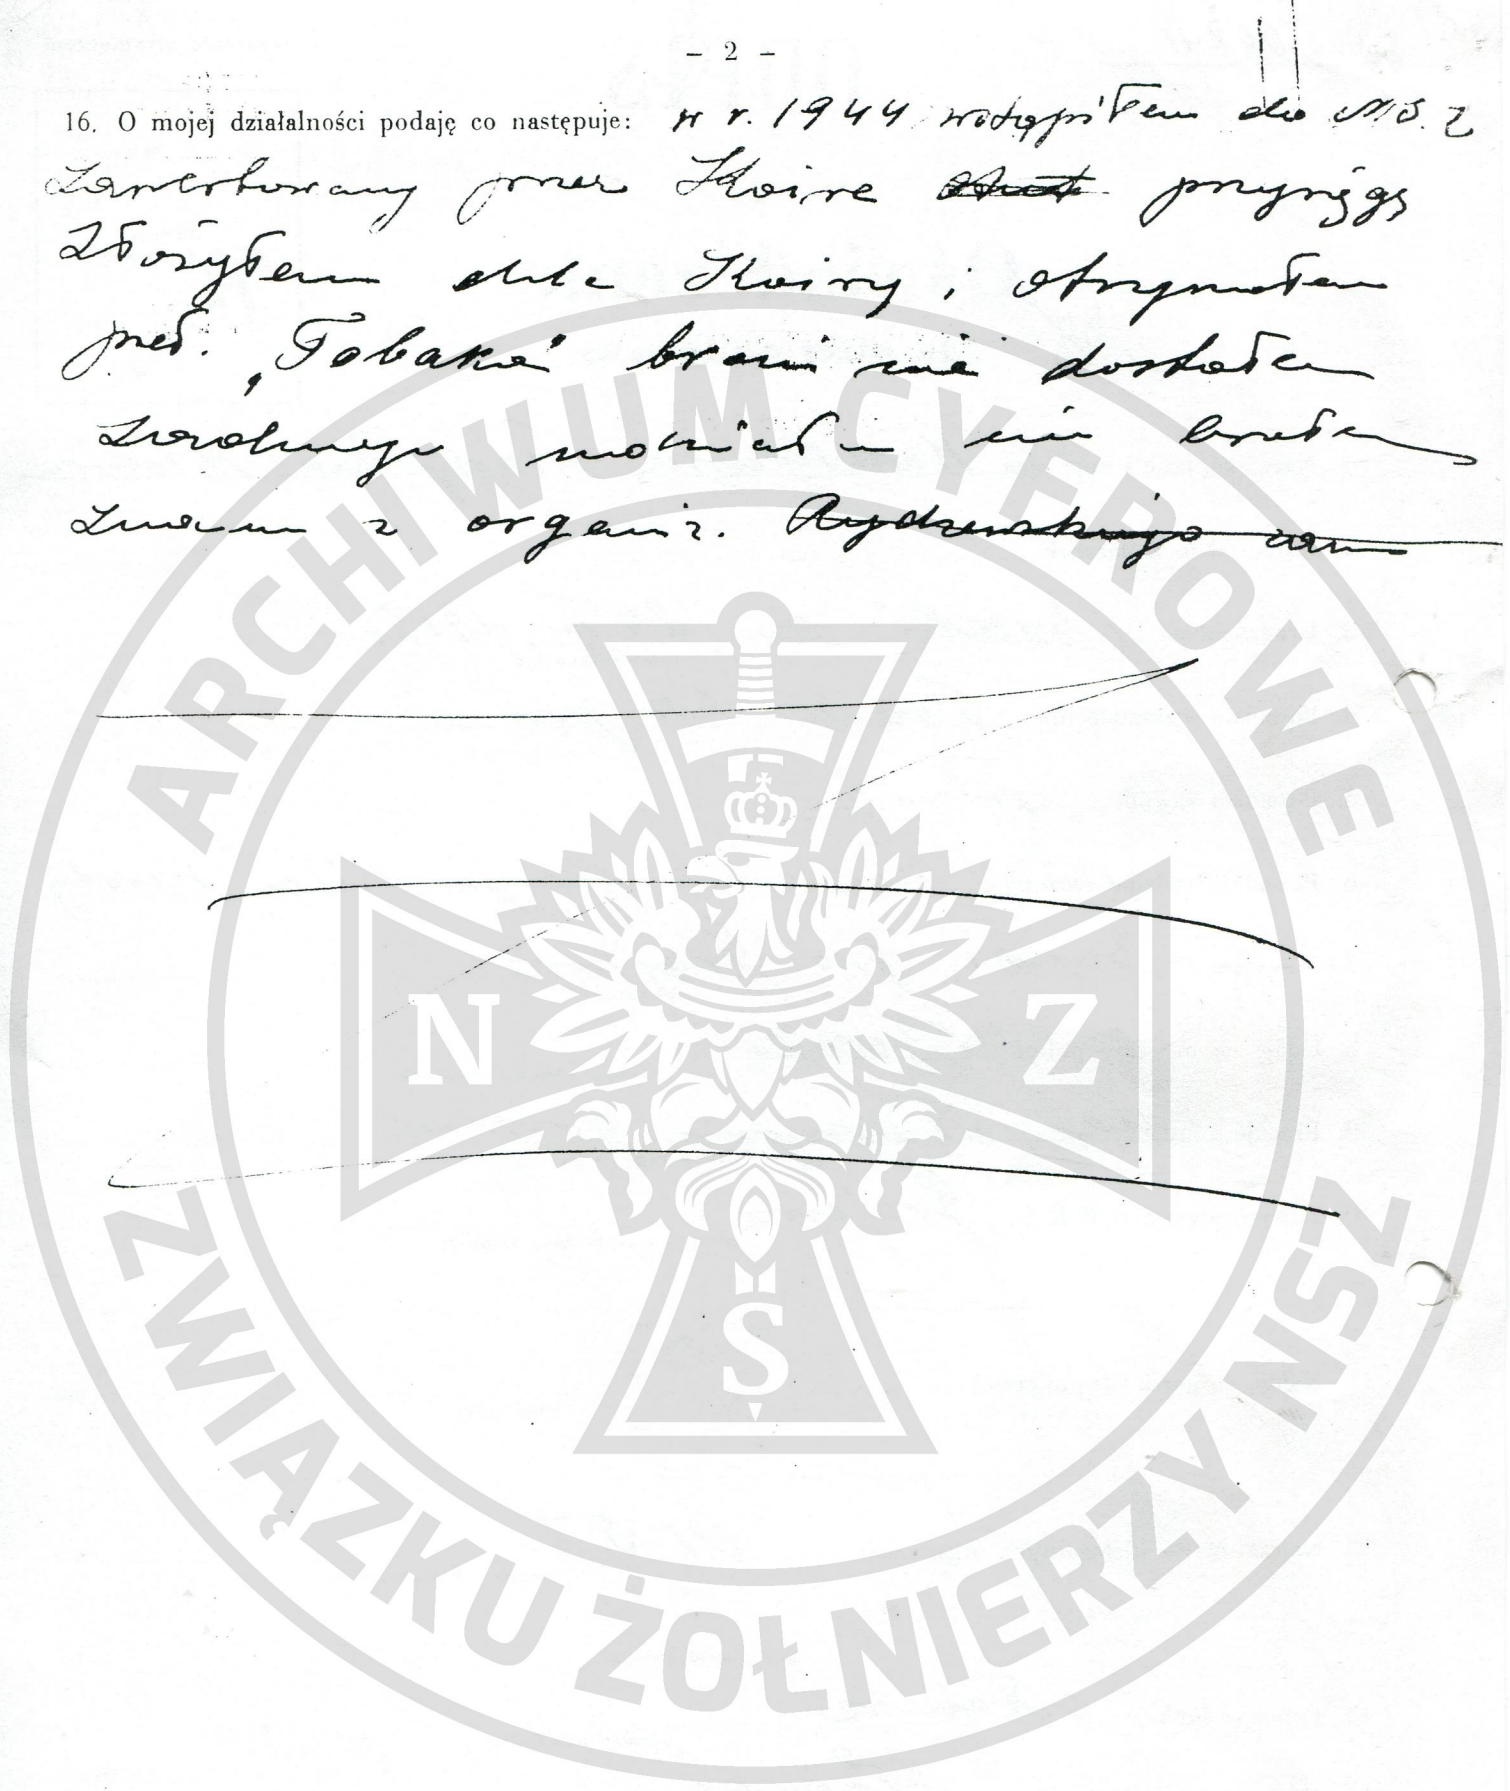 - 2 -
16. O mojej działalności podaję co następuje: w r. 1944 wstąpiłem do N.S.Z
zawerbowany przez przysięgę
złożyłem i otrzymałem
pseł. „Tabaka” broni nie dostałem
żadnego udziału nie brałem
znam z organiz. Rydzewskiego
ARCHIWUM CYFROWE
N Z
S
ZWIĄZKU ŻOŁNIERZY NSZ